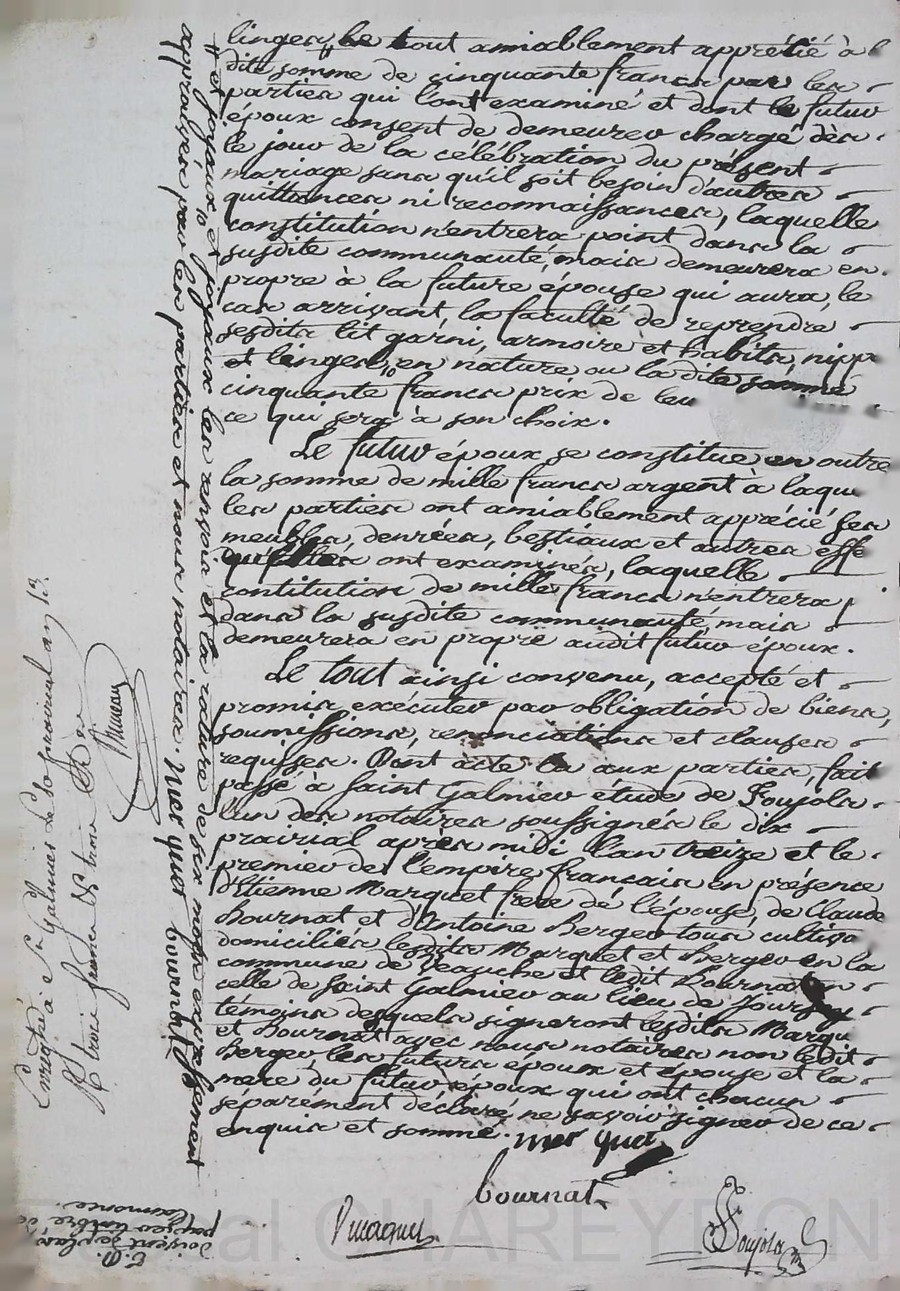 linges, le tout amiablement apprétié à l
dite somme de cinquante francs par les
parties qui l'ont examiné et dont le futur
époux consent de demeurer chargé dès
le jour de la célébration du présent
mariage sans qu'il soit besoin d'autres
quittances ni reconnaissances, laquelle
constitution n'entrera point dans la
susdite communauté, mais demeurera en
propre à la future épouse qui aura, le
cas arrivant, la faculté de reprendre
sesdits lit garni, armoire et habits, nipp
et linges, en nature ou la dite somme
cinquante francs prix de leu
ce qui sera à son choix.
Le futur époux se constitue en outre
la somme de mille francs argent à laqu
les parties ont amiablement apprécié ses
meubles, denrées, bestiaux et autres effe
qu'elles ont examinés, laquelle
contitution de mille francs n'entrera p
dans la susdite communauté, mais
demeurera en propre audit futur époux.
Le tout ainsi convenu, accepté et
promis exécuter par obligation de biens,
soumissions, renonciations et clauses
requises. Dont acte aux parties, fait
passé à Saint Galmier étude de Foujols
l'un des notaires soussignés le dix
prairial après midi l'an treize et le
premier de l'empire français en présence
d'Etienne Marquet frere de l'épouse, de Claude
Bournat et d'Antoine Berger tous cultiva
domiciliés lesdits Marquet et Berger en la
commune de Veauche et ledit Bournat en
celle de Saint Galmier au lieu de Jourcey
témoins desquels signeront lesdits Marqu
et Bournat avec nous notaires non ledit
Berger les futurs époux et épouse et la
mere du futur époux qui ont chacun
séparément déclaré ne savoir signer de ce
enquis et sommé.
mar quet
bournat
Foujols
et joyaux, et joyaux les susdits et la valeur de six mois expressément
appraisés par les parties et nous notaires. mar quet bournat
Enregistré à St Galmier le 10 prairial an 13.
Reçu trois francs
papier timbré